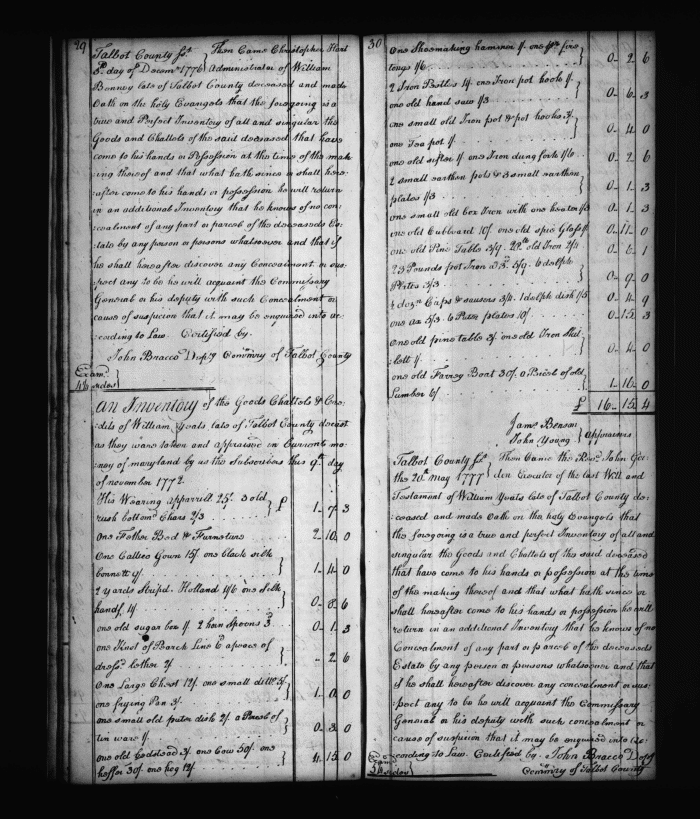 29
Talbot County Sst. } Then Came Christopher Hart
3d. day of Decemr. 1776 } Administrator of William
Bonney late of Talbot County deceased and made
Oath on the holy Evangels that the foregoing is a
true and Perfect Inventory of all and singular the
Goods and Chattels of the said deceased that have
come to his hands or Possession at the time of the mak
ing thereof and that what hath since or shall here
after come to his hands or possession he will return
in an additional Inventory that he knows of no con
cealment of any part or parcel of the deceaseds Es
tate by any person or persons whatsoever and that if
he shall hereafter discover any Concealment or sus
pect any to be he will acquaint the Commissary
General or his deputy with such Concealment or
cause of suspicion that it may be enquired into ac
cording to Law. Certified by.
John Bracco Depy. Commry of Talbot County
Exam.
4½ sides
An Inventory of the Goods Chattels & Cre
dits of William Yeats late of Talbot County deceast
as they were taken and appraised in Current mo
ney of maryland by us the Subscribers this 9th. day
of november 1772.
His Wearing Apparrell 25/. 3 old } £
rush bottom Chars 2/3 1 - 7 - 3
One Father Bed & Furneture 2 - 10 - 0
One Callico Gown 15/ one black silk }
bonnett 9/ 1 - 4 - 0
2 yards Stripd. Holland 4/6 one Silk }
handf. 4/ 0 - 8 - 6
one old sugar box 1/ 2 horn Spoons 3d. 0 - 1 - 3
one Knot of Pearch Line & a peace of }
dressd. lether 2/ " - 2 - 6
One Large Chest 12/. one small ditto 5/ }
one frying Pan 3/. 1 - 0 - 0
one small old puter dish 2/. a Parcel of }
tin ware 1/ 0 - 3 - 0
one old Bedsteed 3/. one Cow 50/. one }
heffer 30/. one hog 12/. 4 - 15 - 0
30
One Shoemaking hammer 1/. one pr. fire }
tongs 1/6 0 - 2 - 6
2 Iron Pestles 1/. one Iron pot hook 1/- }
one old hand saw 1/3 0 - 6 - 3
one small old Iron pot & pot hooks 3/. }
one Tea pot 1/ 0 - 4 - 0
one old sifter 1/ one Iron dung fork 1/6 0 - 2 - 6
2 small earthen pots & 3 small earthen }
plates 1/3 0 - 1 - 3
one small old box Iron with one heater 1/3 0 - 1 - 3
one old Cubboard 10/. one old spie Glass 1/ 0 - 11 - 0
one old Pine Table 3/9. old Iron 2/4 0 - 6 - 1
23 Pounds pot Iron 5/9. 6 delph }
Plates 3/3 0 - 9 - 0
½ dozn. Cups & sausers 3/4. 1 delph dish 1/5 0 - 4 - 9
one ax 5/3. 6 Puter plates 10/ 0 - 15 - 3
one old pine table 3/. one old Iron Skil }
lett 1/ 0 - 4 - 0
one old Farrey Boat 30/. a Parcel of old }
Lumber 6/ 1 - 16 - 0
£ 16 - 15 - 4
Jams. Benson } Appraisers
John Young }
Talbot County Sst. } Then Came the Revd. John Gor
the 20th. May 1777 } don Executor of the last Will and
Testament of William Yeats late of Talbot County de
ceased and made Oath on the holy Evangels that
the foregoing is a true and perfect Inventory of all and
singular the Goods and Chattels of the said deceased
that have come to his hands or possession at the time
of the making thereof and that what hath since or
shall hereafter come to his hands or possession he will
return in an additional Inventory that he knows of no
Concealment of any part or parcel of the deceaseds
Estate by any person or persons whatsoever and that
if he shall hereafter discover any concealment or sus
pect any to be he will acquaint the Commissary
General or his deputy with such concealment or
cause of suspicion that it may be enquired into ac
cording to Law. Certified by. John Bracco Depy
Commry of Talbot County
Exam.
5½ sides